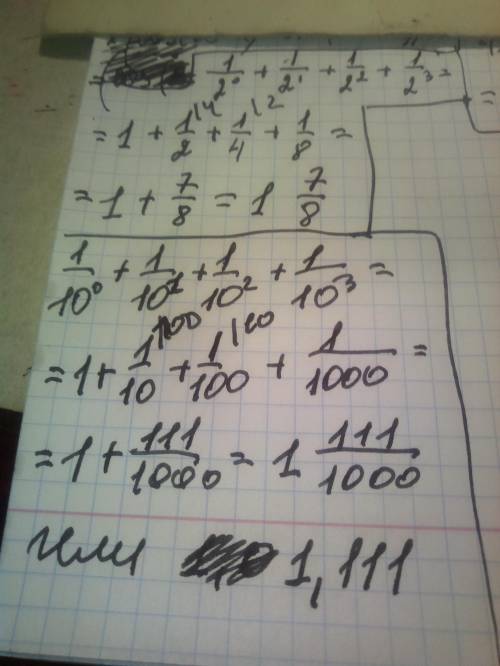 1/2⁰ + 1/2¹ + 1/2² + 1/2³ =
= 1 + 1/2 |4 + 1/4 |2 + 1/8 =
= 1 + 7/8 = 1 7/8
1/10⁰ + 1/10¹ + 1/10² + 1/10³ =
= 1 + 1/10 |100 + 1/100 |10 + 1/1000 =
= 1 + 111/1000 = 1 111/1000
или 1,111